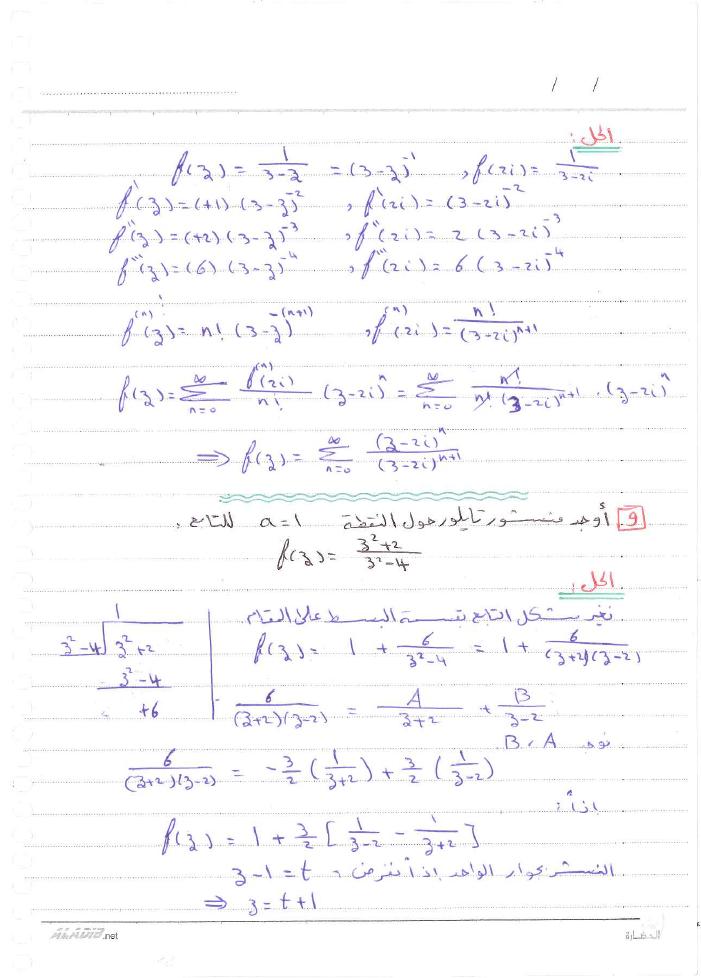 / /
الحل:
f(z) = 1/(3-z) = (3-z)^-1 , f(2i) = 1/(3-2i)
f'(z) = (+1) (3-z)^-2 , f'(2i) = (3-2i)^-2
f''(z) = (+2) (3-z)^-3 , f''(2i) = 2 (3-2i)^-3
f'''(z) = (6) (3-z)^-4 , f'''(2i) = 6 (3-2i)^-4
f^(n)(z) = n! (3-z)^-(n+1) , f^(n)(2i) = n!/(3-2i)^n+1
f(z) = ∑_{n=0}^{∞} f^(n)(2i)/n! (z-2i)^n = ∑_{n=0}^{∞} n!/(n! (3-2i)^n+1) · (z-2i)^n
⇒ f(z) = ∑_{n=0}^{∞} (z-2i)^n/(3-2i)^n+1
9. أوجد منشور تايلور حول النقطة a=1 للتابع ,
f(z) = (z²+2)/(z²-4)
الحل:
نغير شكل التابع بقسمة البسط على المقام
f(z) = 1 + 6/(z²-4) = 1 + 6/((z+2)(z-2))
1
z²-4 z²+2
z²-4
+6
6/((z+2)(z-2)) = A/(z+2) + B/(z-2)
نوجد B , A
6/((z+2)(z-2)) = -3/2 (1/(z+2)) + 3/2 (1/(z-2))
إذاً:
f(z) = 1 + 3/2 [1/(z-2) - 1/(z+2)]
النشر بجوار الواحد إذاً نفرض : z-1 = t
⇒ z = t+1
ALHADARA.net
الحضارة